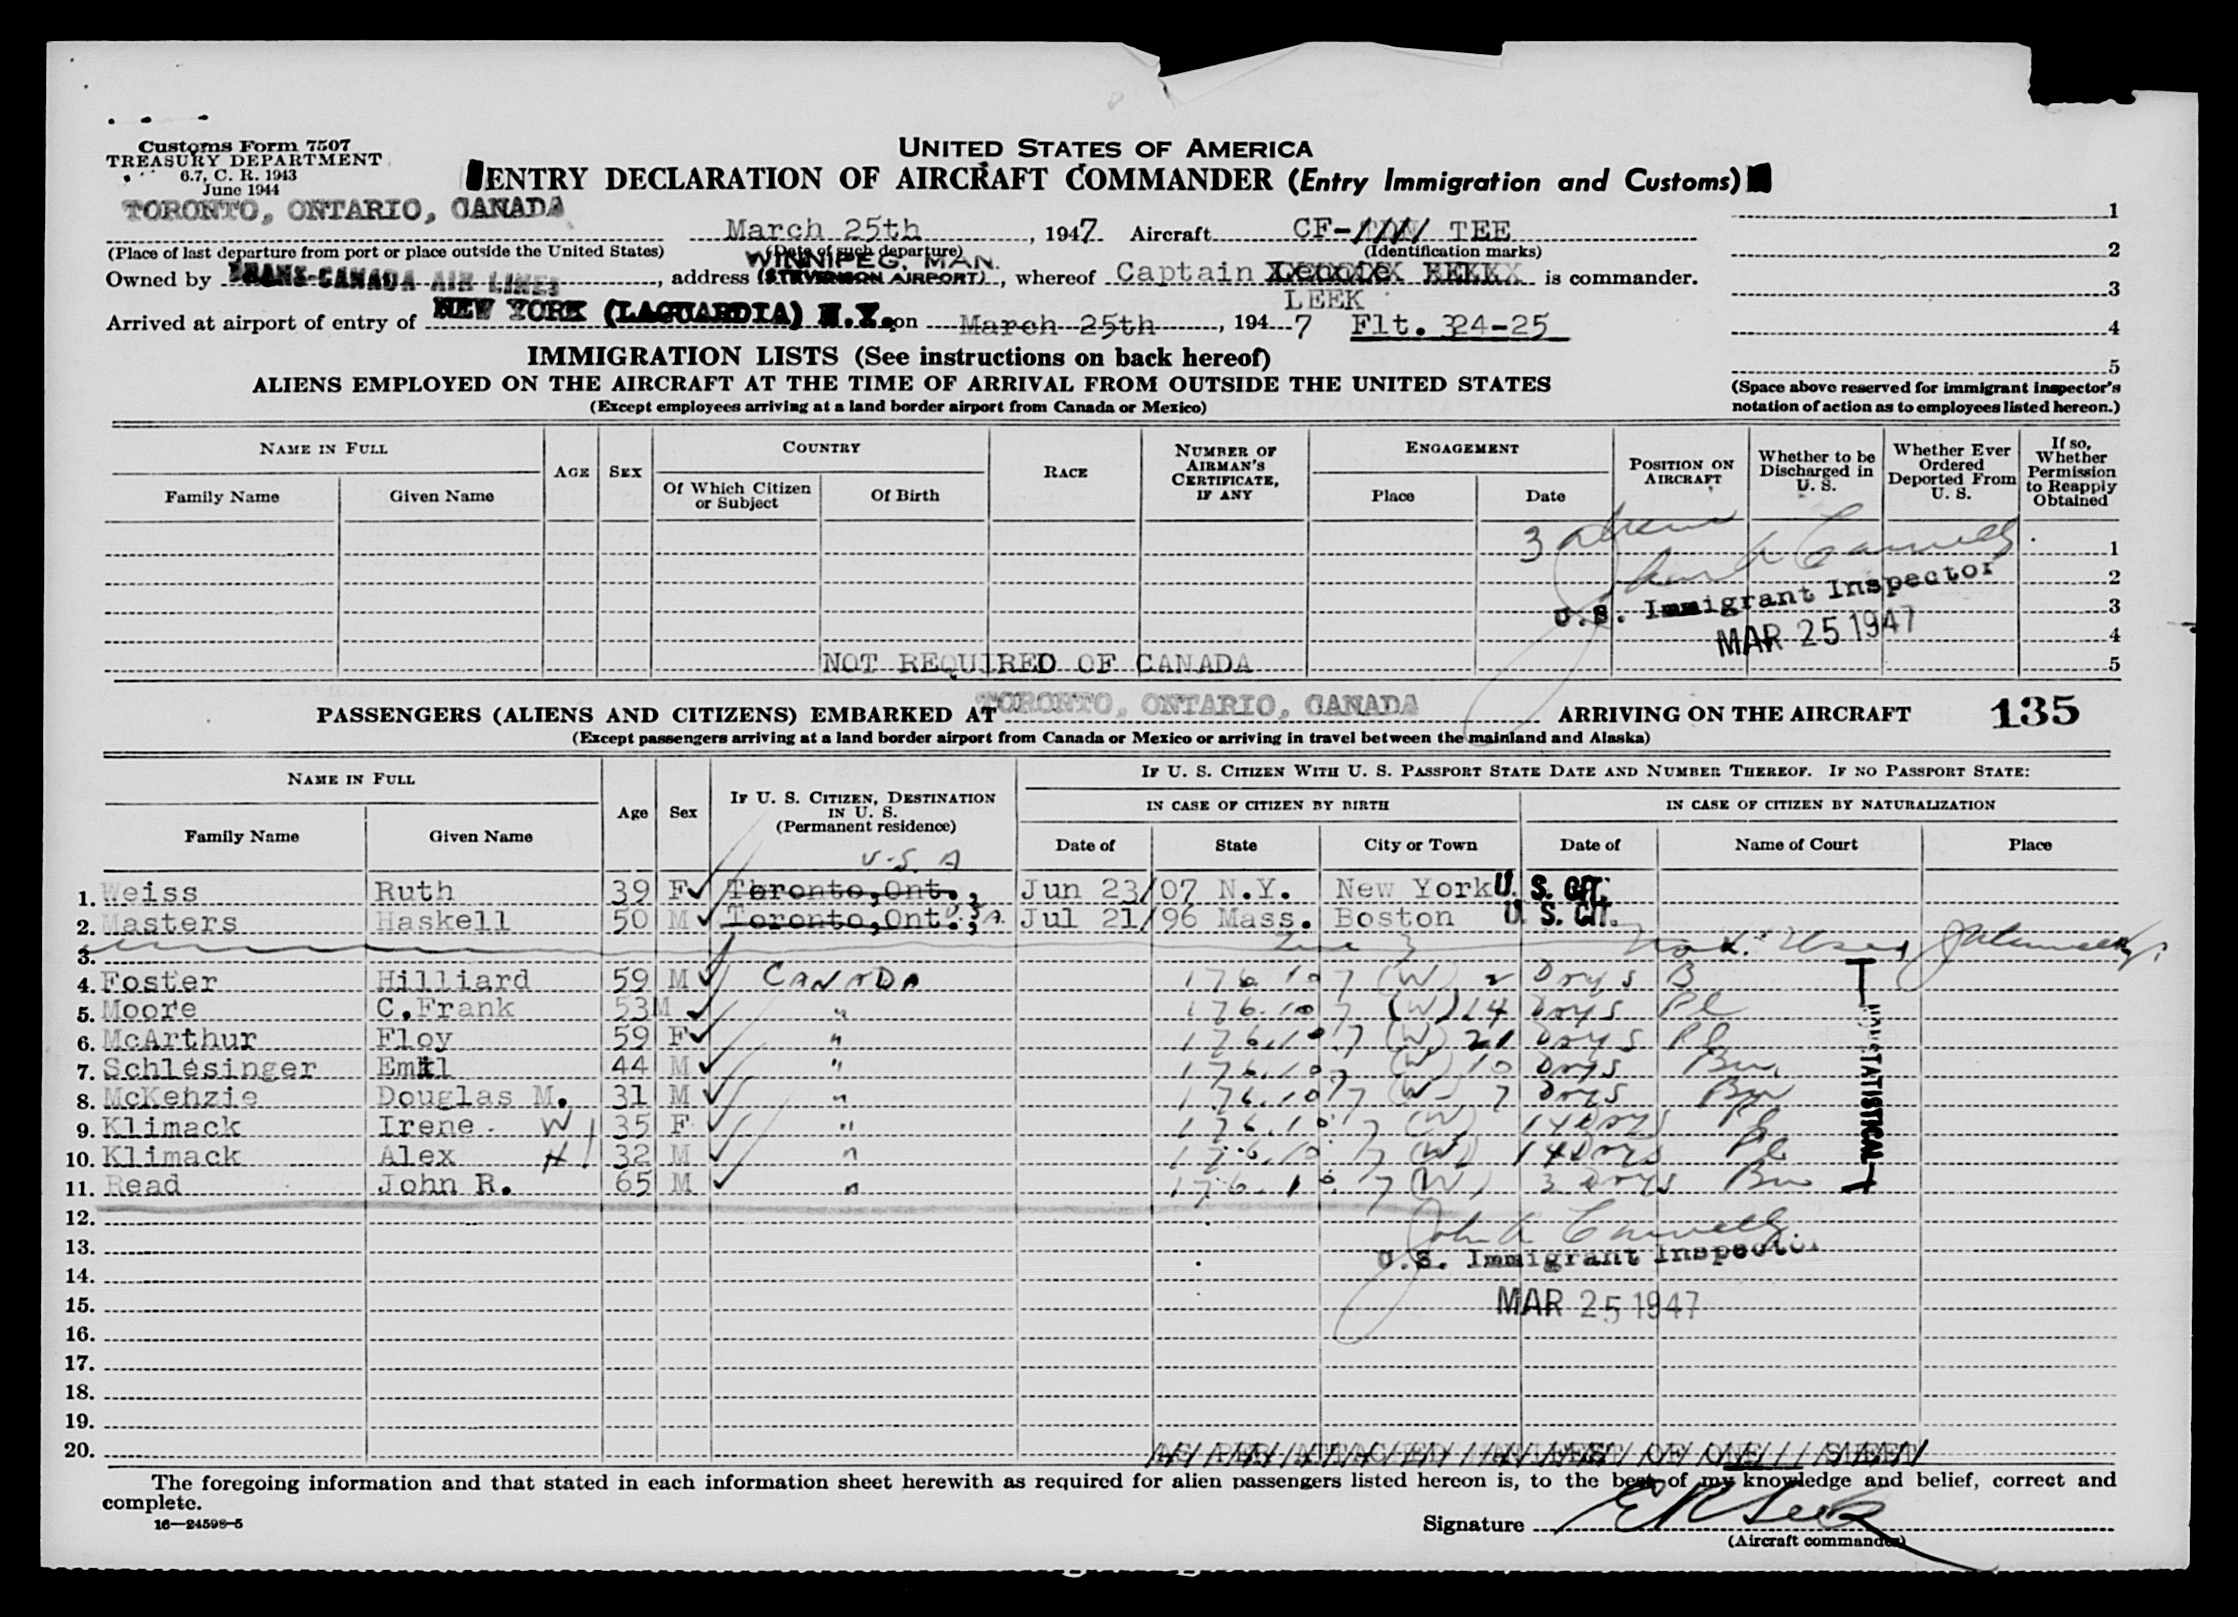 Customs Form 7507
TREASURY DEPARTMENT
6.7, C. R. 1943
June 1944
UNITED STATES OF AMERICA
ENTRY DECLARATION OF AIRCRAFT COMMANDER (Entry Immigration and Customs)
TORONTO, ONTARIO, CANADA
March 25th, 1947 Aircraft CF- TEE
(Place of last departure from port or place outside the United States) (Date of such departure) (Identification marks)
WINNIPEG, MAN.
Owned by TRANS-CANADA AIR LINES, address (STEVENSON AIRPORT), whereof Captain is commander.
LEEK
Arrived at airport of entry of NEW YORK (LAGUARDIA) N.Y. on March 25th, 1947 Flt. 324-25
1
2
3
4
5
(Space above reserved for immigrant inspector's
notation of action as to employees listed hereon.)
IMMIGRATION LISTS (See instructions on back hereof)
ALIENS EMPLOYED ON THE AIRCRAFT AT THE TIME OF ARRIVAL FROM OUTSIDE THE UNITED STATES
(Except employees arriving at a land border airport from Canada or Mexico)
NAME IN FULL
Family Name Given Name
AGE SEX
COUNTRY
Of Which Citizen or Subject Of Birth
RACE
NUMBER OF AIRMAN'S CERTIFICATE, IF ANY
ENGAGEMENT
Place Date
POSITION ON AIRCRAFT
Whether to be Discharged in U. S.
Whether Ever Ordered Deported From U. S.
If so, Whether Permission to Reapply Obtained
3
1
2
U.S. Immigrant Inspector
3
MAR 25 1947
4
NOT REQUIRED OF CANADA
5
PASSENGERS (ALIENS AND CITIZENS) EMBARKED AT TORONTO, ONTARIO, CANADA ARRIVING ON THE AIRCRAFT 135
(Except passengers arriving at a land border airport from Canada or Mexico or arriving in travel between the mainland and Alaska)
NAME IN FULL
Family Name Given Name
Age Sex
IF U. S. CITIZEN, DESTINATION IN U. S. (Permanent residence)
IF U. S. CITIZEN WITH U. S. PASSPORT STATE DATE AND NUMBER THEREOF. IF NO PASSPORT STATE:
IN CASE OF CITIZEN BY BIRTH
IN CASE OF CITIZEN BY NATURALIZATION
Date of State City or Town Date of Name of Court Place
U.S. A
1. Weiss Ruth 39 F Toronto, Ont., Jun 23/07 N.Y. New York U. S. CIT.
2. Masters Haskell 50 M Toronto, Ont., U.S.A. Jul 21/96 Mass. Boston U. S. CIT.
3. Line 3 Not Used
4. Foster Hilliard 59 M CANADA 176.107 (W) 2 Days B
5. Moore C.Frank 53 M " 176.107 (W) 14 Days Pl
6. McArthur Floy 59 F " 176.107 (W) 21 Days Pl
7. Schlesinger Emil 44 M " 176.107 (W) 10 Days Bus
8. McKenzie Douglas M. 31 M " 176.107 (W) 7 Days Bus
9. Klimack Irene W 35 F " 176.107 (W) 14 Days Pl
10. Klimack Alex H 32 M " 176.107 (W) 14 Days Pl
11. Read John R. 65 M " 176.107 (W) 3 Days Bus
STATISTICAL
12.
13.
U.S. Immigrant Inspector
14.
15.
MAR 25 1947
16.
17.
18.
19.
20. AS PER ATTACHED OF ONE SHEET
The foregoing information and that stated in each information sheet herewith as required for alien passengers listed hereon is, to the best of my knowledge and belief, correct and
complete.
16—24598-5
Signature E R Leek
(Aircraft commander)